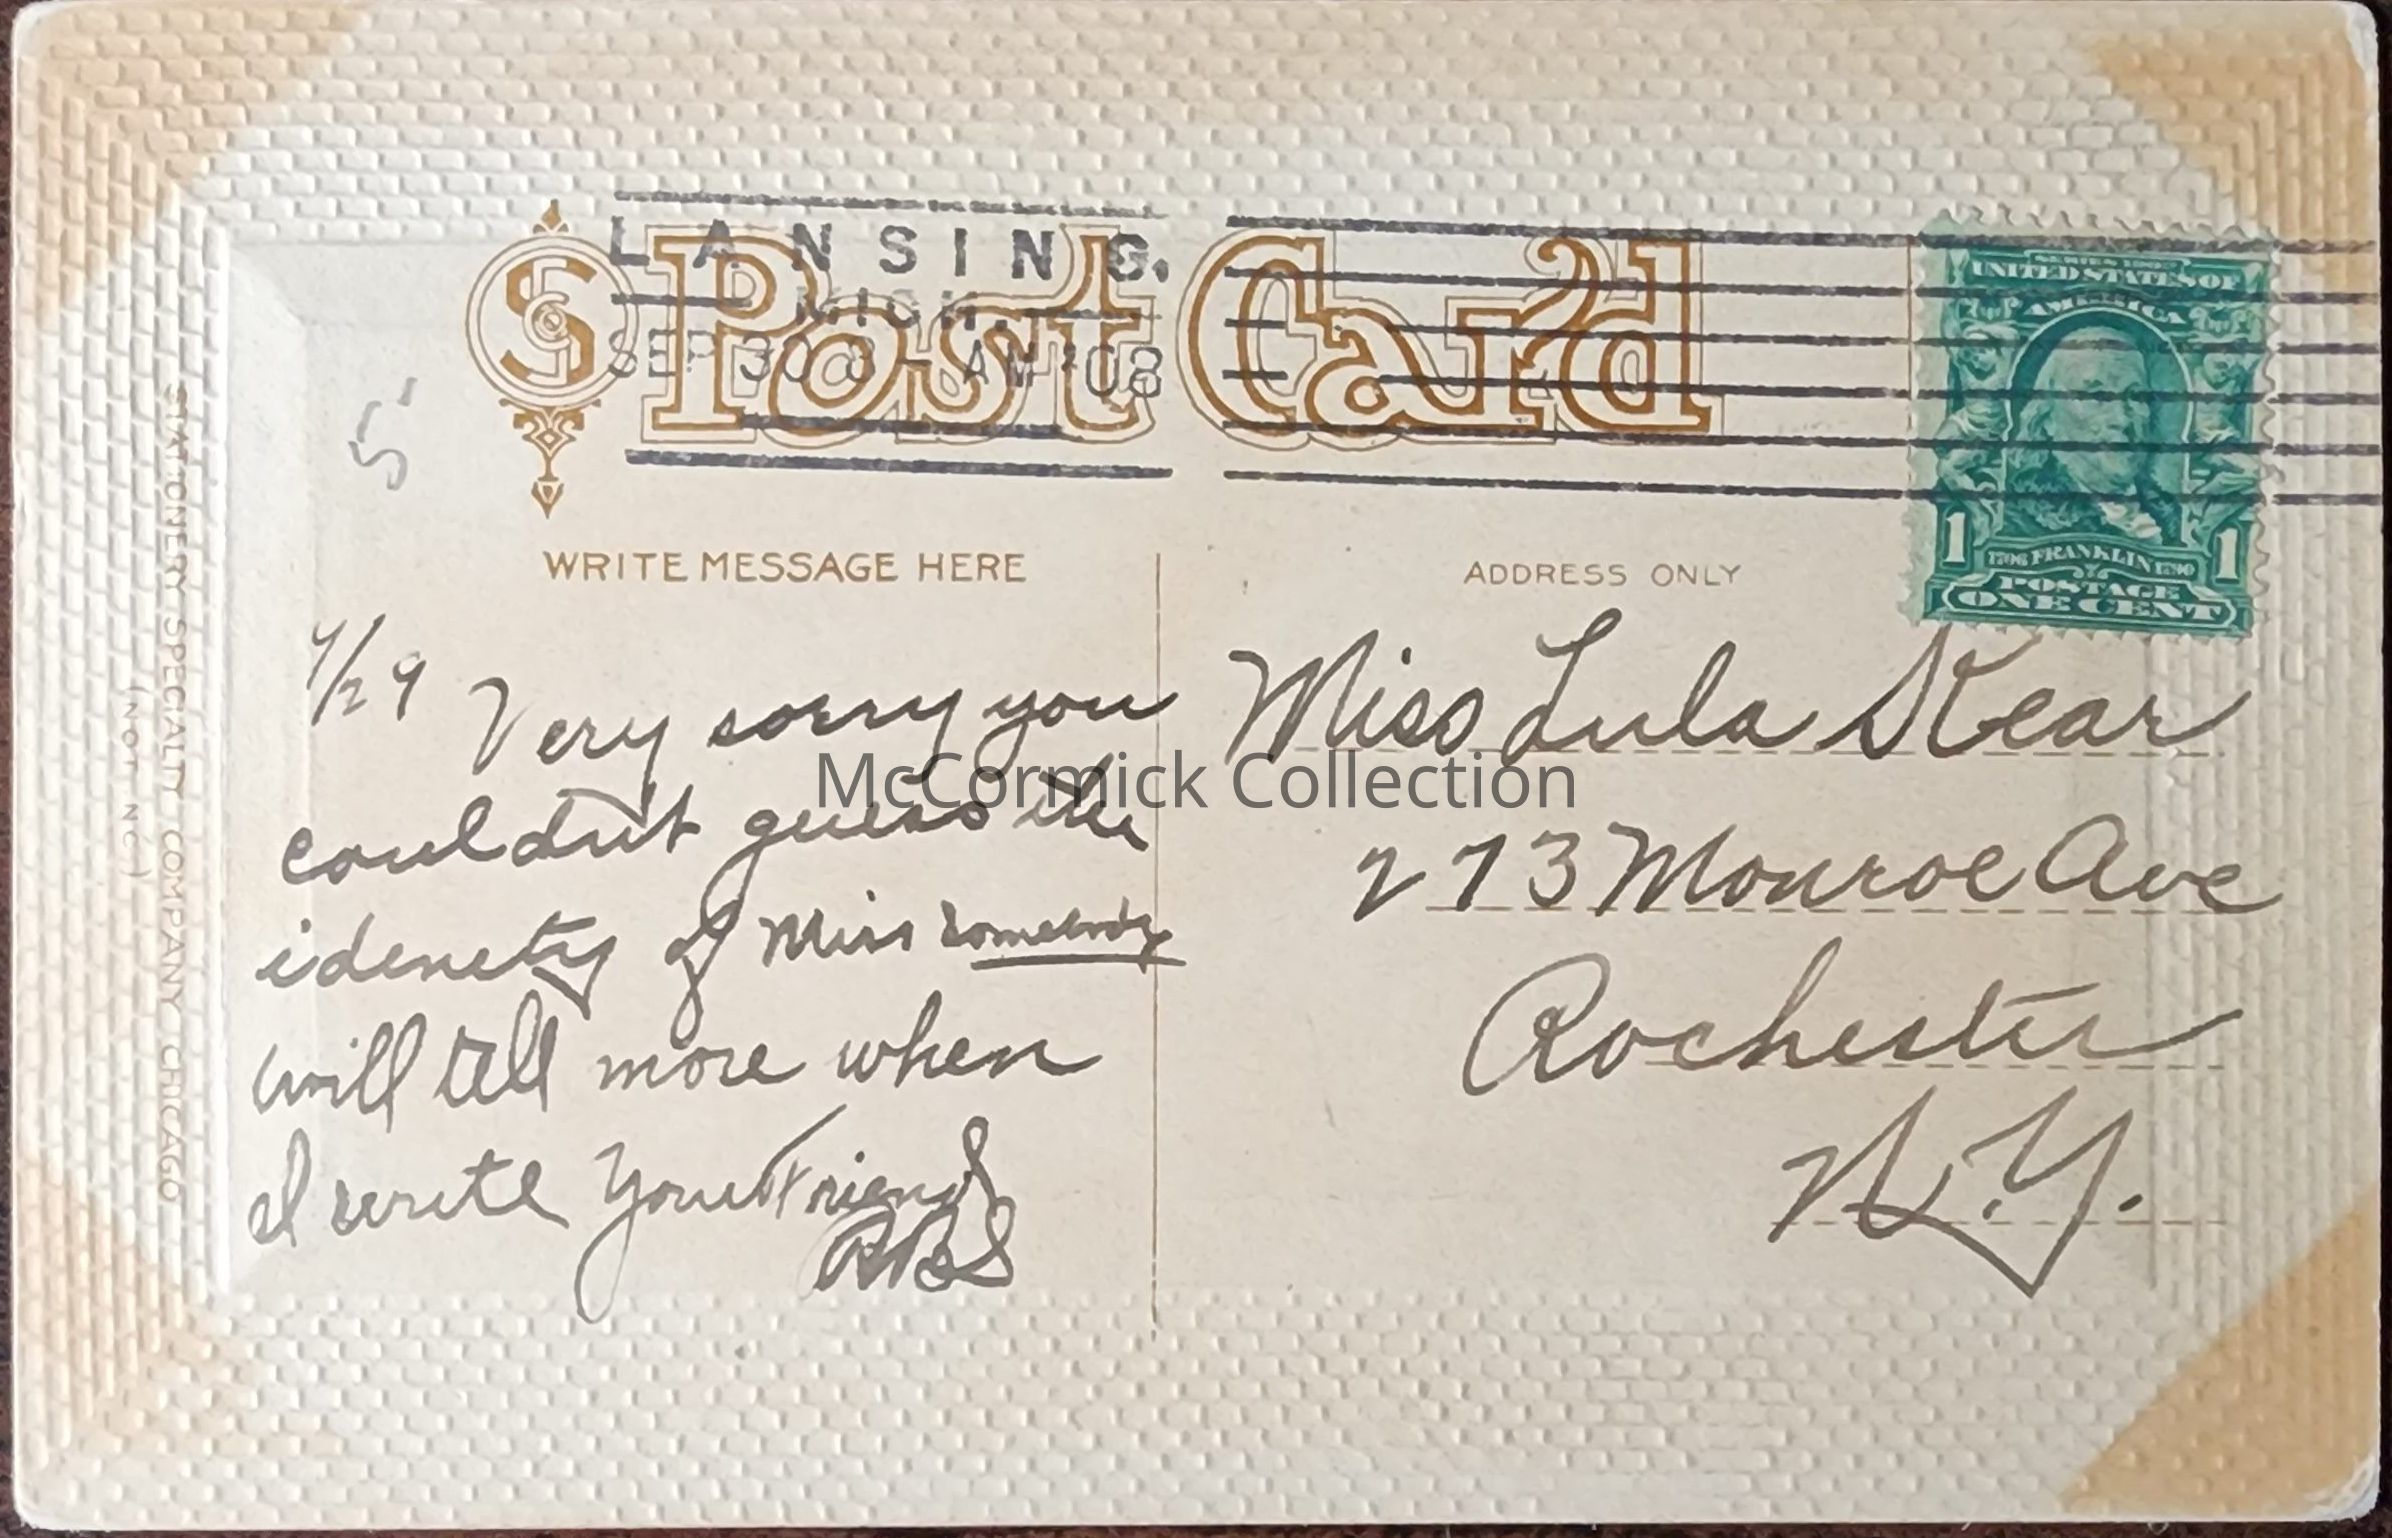 LANSING.
MICH.
SEP 30 8 - AM '08
Post Card
SERIES 1902
UNITED STATES OF
AMERICA
1 1706 FRANKLIN 1790 1
POSTAGE
ONE CENT
5
WRITE MESSAGE HERE
ADDRESS ONLY
9/29 Very sorry you
couldnt guess the
idenety of Miss somebody
will tell more when
I write Your Friend
RBS
Miss Lula Kear
273 Monroe Ave
Rochester
N.Y.
STATIONERY SPECIALTY COMPANY CHICAGO
(NOT INC.)
McCormick Collection